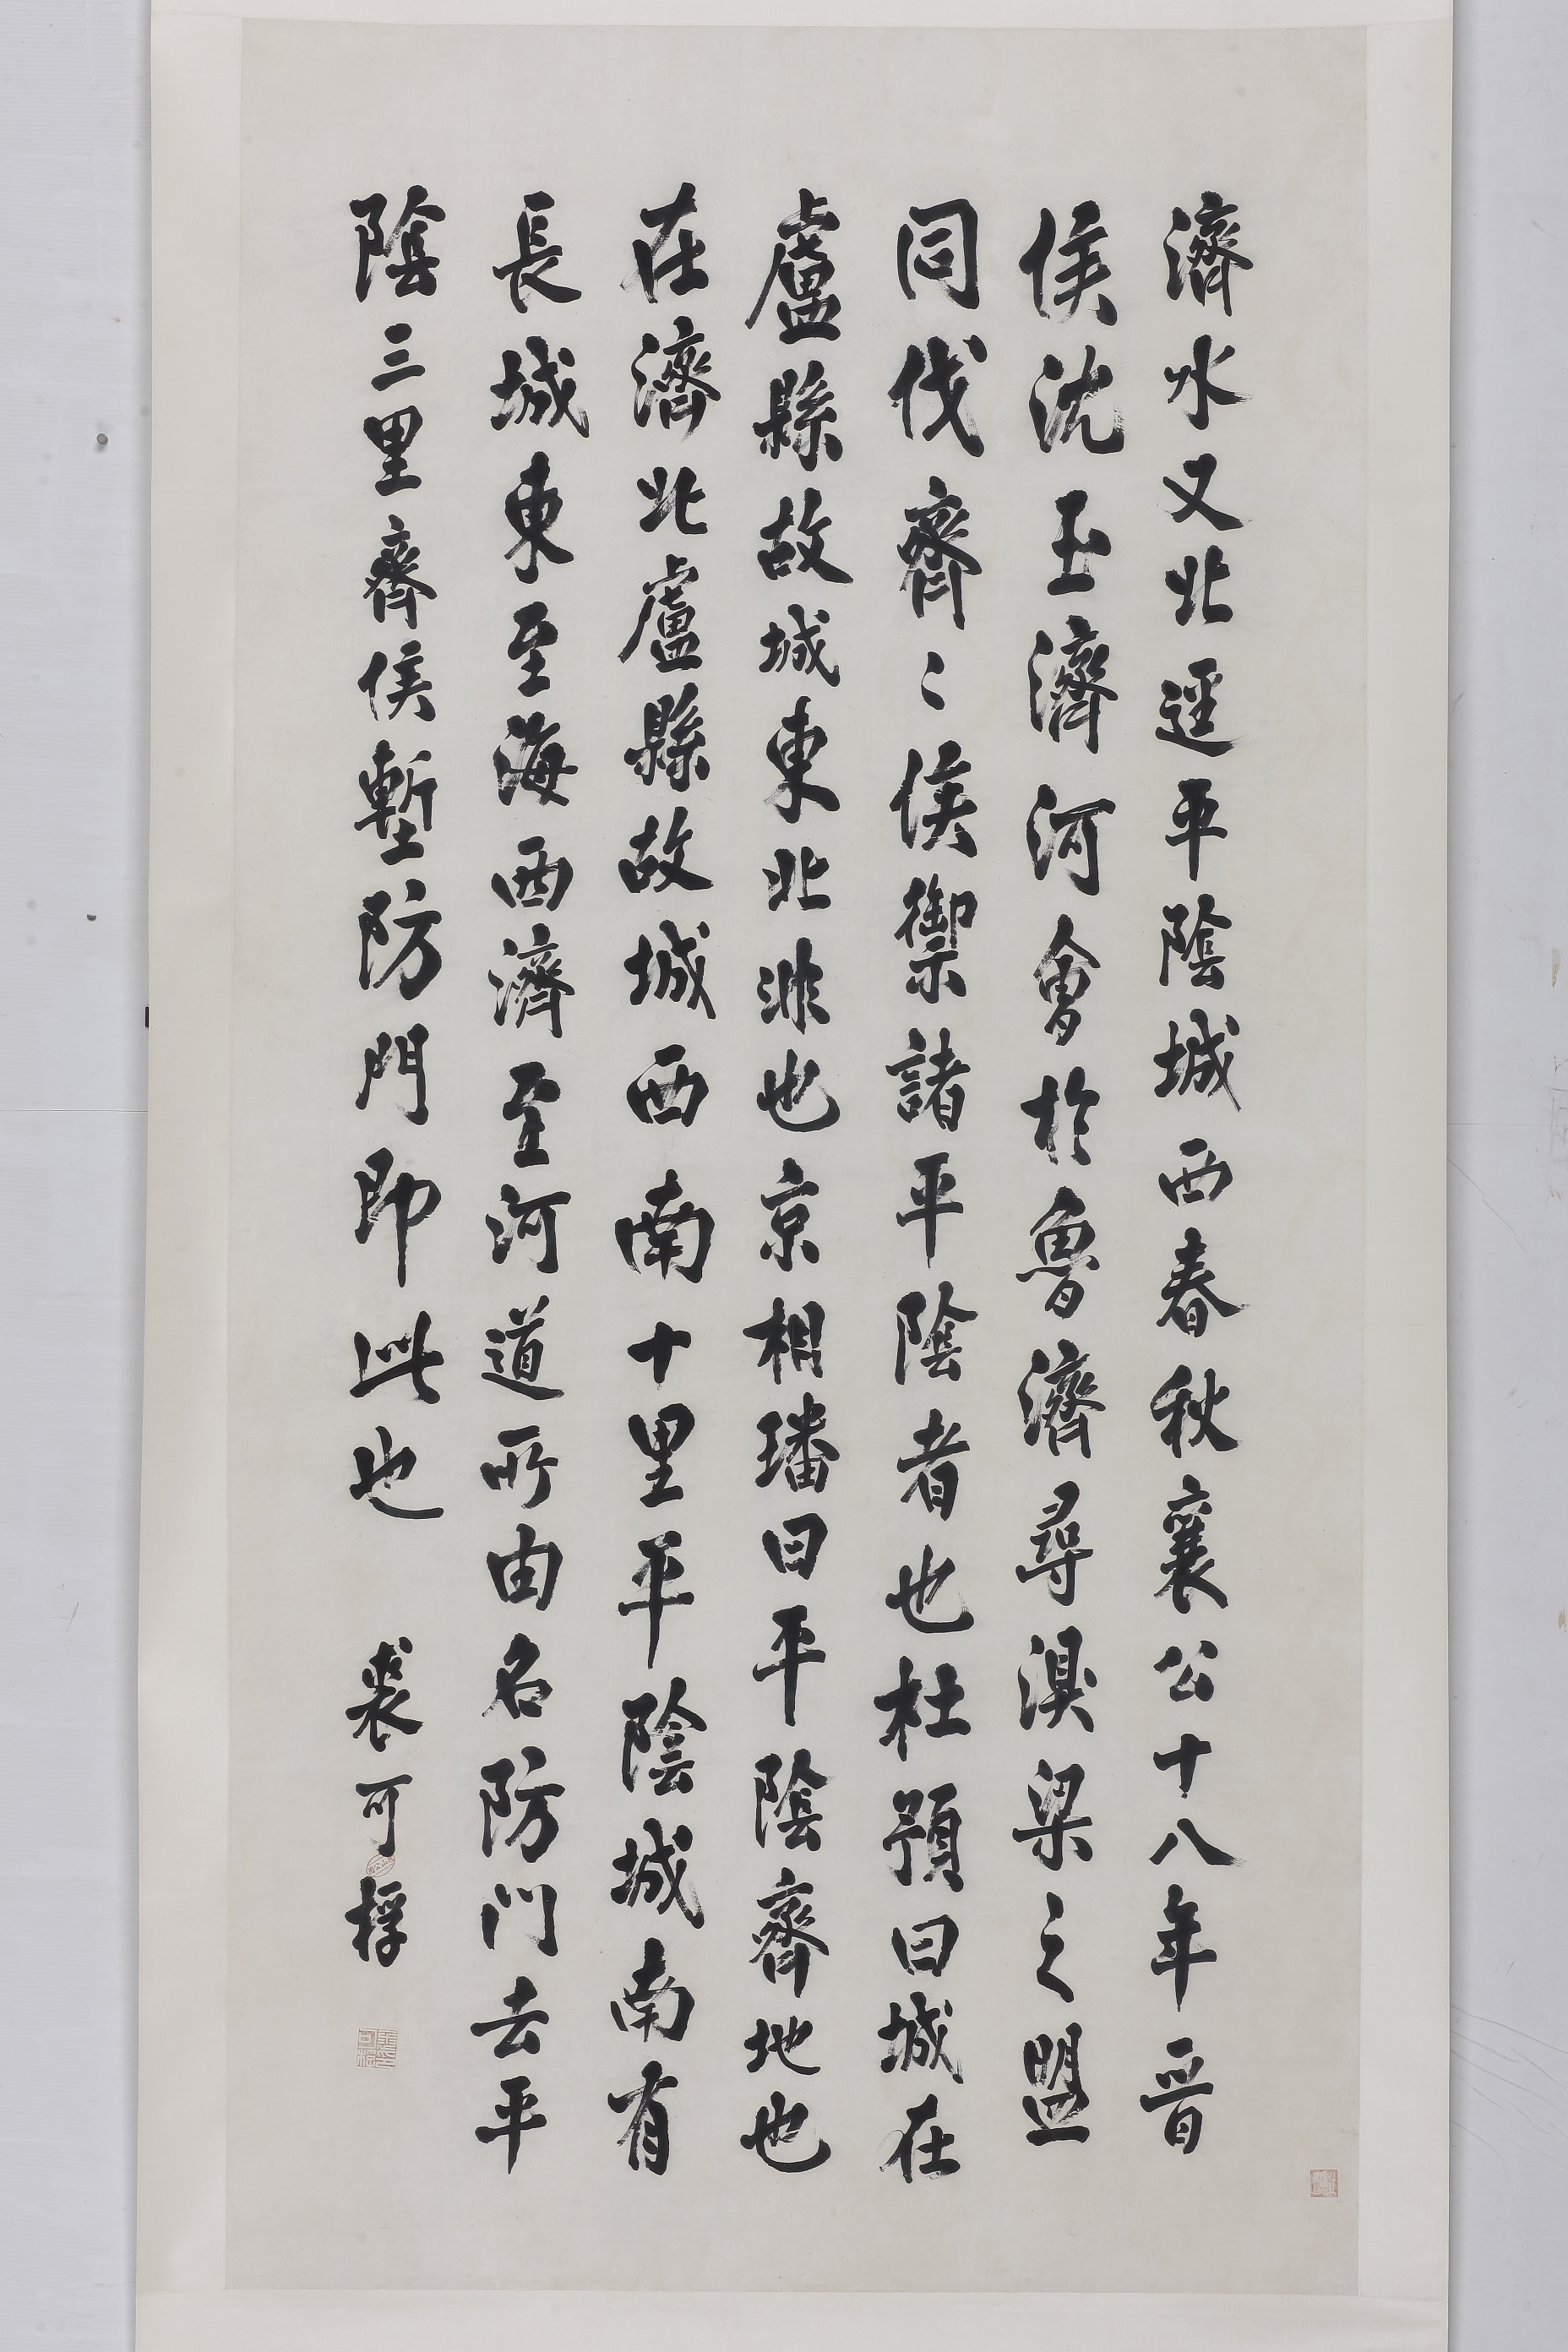 濟水又北逕平陰城西春秋襄公十八年晉
侯沈玉濟河會於魯濟尋湨梁之盟
同伐齊〻侯禦諸平陰者也杜預曰城在
盧縣故城東北非也京相璠曰平陰齊地也
在濟北盧縣故城西南十里平陰城南有
長城東至海西濟至河道所由名防门去平
陰三里齊侯塹防門即此也 裘可桴